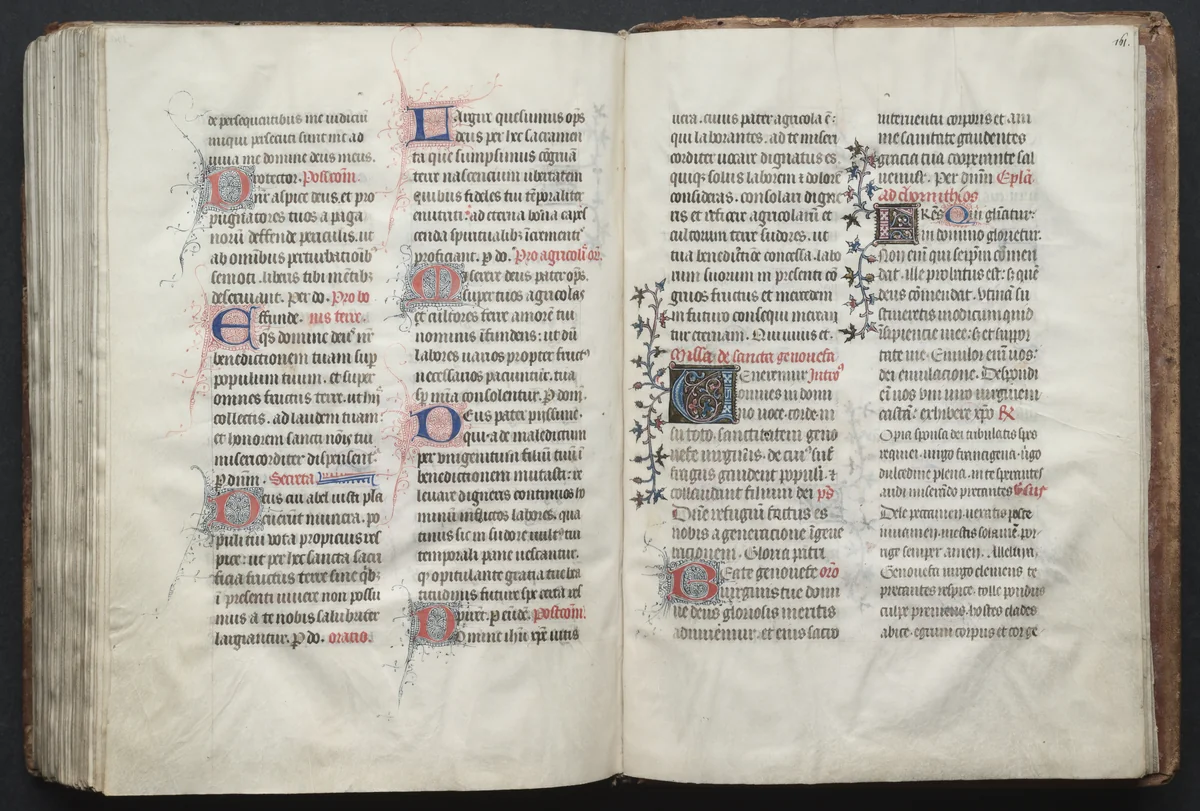 de persequentibus me iudiciū
iniqui persecuti sunt me ad
iuua me domine deus meus.
Protector. Postcom̄.
ne aspice deus. et pro
pugnatores tuos a paga
norū deffende periculis. ut
ab omībus perturbatioīb
semoti. liberis tibi mētibꝫ
deseruiant. Per do. Pro bo
Effunde. nis terre.
qs domine deus nr̄
benedictionem tuam sup
populum tuum. et super
omnes fructus terre. ut hii
collectis. ad laudem tuam
et honorem sancti nōis tui
misericorditer dispensent.
P dnm̄. Secreta
Deus cui abel iusti pla
cuerūt munera. po
puli tui vota propicius res
pice: ut per hec sancta sacri
ficia fructus terre sine qbꝫ
ī presenti uiuere non possu
mus a te nobis salubriter
largiantur. P do. oracio.
Largire quesumus ops
deus per hec sacramen
ta que sumpsimus
terre nascencium ubertatem
quibus fideles tui tēporaliter
enutriti: ad eterna bona capes
cenda spiritualibꝫ īcrementꝭ
proficiant. P do. Pro agricolis or.
Misere deus pater ops.
super tuos agricolas
et cultores terre amorē tui
nominis īfundens: ut dū
labores uarios propter fructꝰ
necessarios paciuntur. tua
sꝑ mīa consolentur. P dom̄.
Deus pater piissime.
qui a de maledictum
per unigenitum filiū tuū ī
benedictionem mutasti: re
leuare digneris continuos ho
minū labores. qua
tinus sic in sudore uultꝰ tui
temporali pane uescantur.
qꝫ opitulante gratia tue bea
titudinis future spe
P eūde. Postcom̄.
Domine ihū xp̄e uitis
uera. cuius pater agricola ē:
qui laborantes. ad te miseri
corditer uocare dignatus es.
quiqꝫ solus laborem et dolorē
consideras. consolari digne
ris et reficere agricolarū et
cultorum terre sudores. ut
tua benedictiōe concessa. labo
rum suorum in presenti cō
gruos fructus et mercedem
in futuro consequi merean
tur eternam. Qui uiuis et.
Missa de sancta genouefa
Eneremur Introꝰ
omnes in domi
no uoce. corde. in
su toto. sanctitatem geno
uefe uirginis. de cuiꝰ suf
fragiis gaudent populi. et
collaudant filium dei ps
Dn̄e refugiū factus es
nobis a generacione ī gene
racionem. Gloria patri
Beate genouefe oro
uirginis tue domi
ne deus gloriosis meritis
adiuuemur. et eius sacro
interuentu corporis et am
me sanitate gaudentes
gracia tua cooperante sal
uemur. Per dnm̄ Epl̄a
ad chorinthios
Fr̄es Qui gl̄iatur:
in domino glorietur.
Non eī qui seipm̄ cōmen
dat. ille probatus est: sꝫ quē
deus cōmendat. Utinā su
stineretis modicum quid
īsipiencie mee: sꝫ et suppor
tate me. Emulor eī uos:
dei emulacione. Despondi
eī uos uni uiro uirginem
castā: exhibere xp̄o R
O pia sponsa dei tribulatis spes
requiei. uirgo francigena. uirgo
dulcedine plena. in te sperantes
audi miserādo precantes Vsus
Dele peccamen. ueratis posce
iuuamen. mestis solamē. por
rige semper amen. Alleluia.
Genouefa uirgo clemens te
precantes respice. tolle pondus
culpe premens. hostes clades
abice. egrum corpus et cor ge
161.